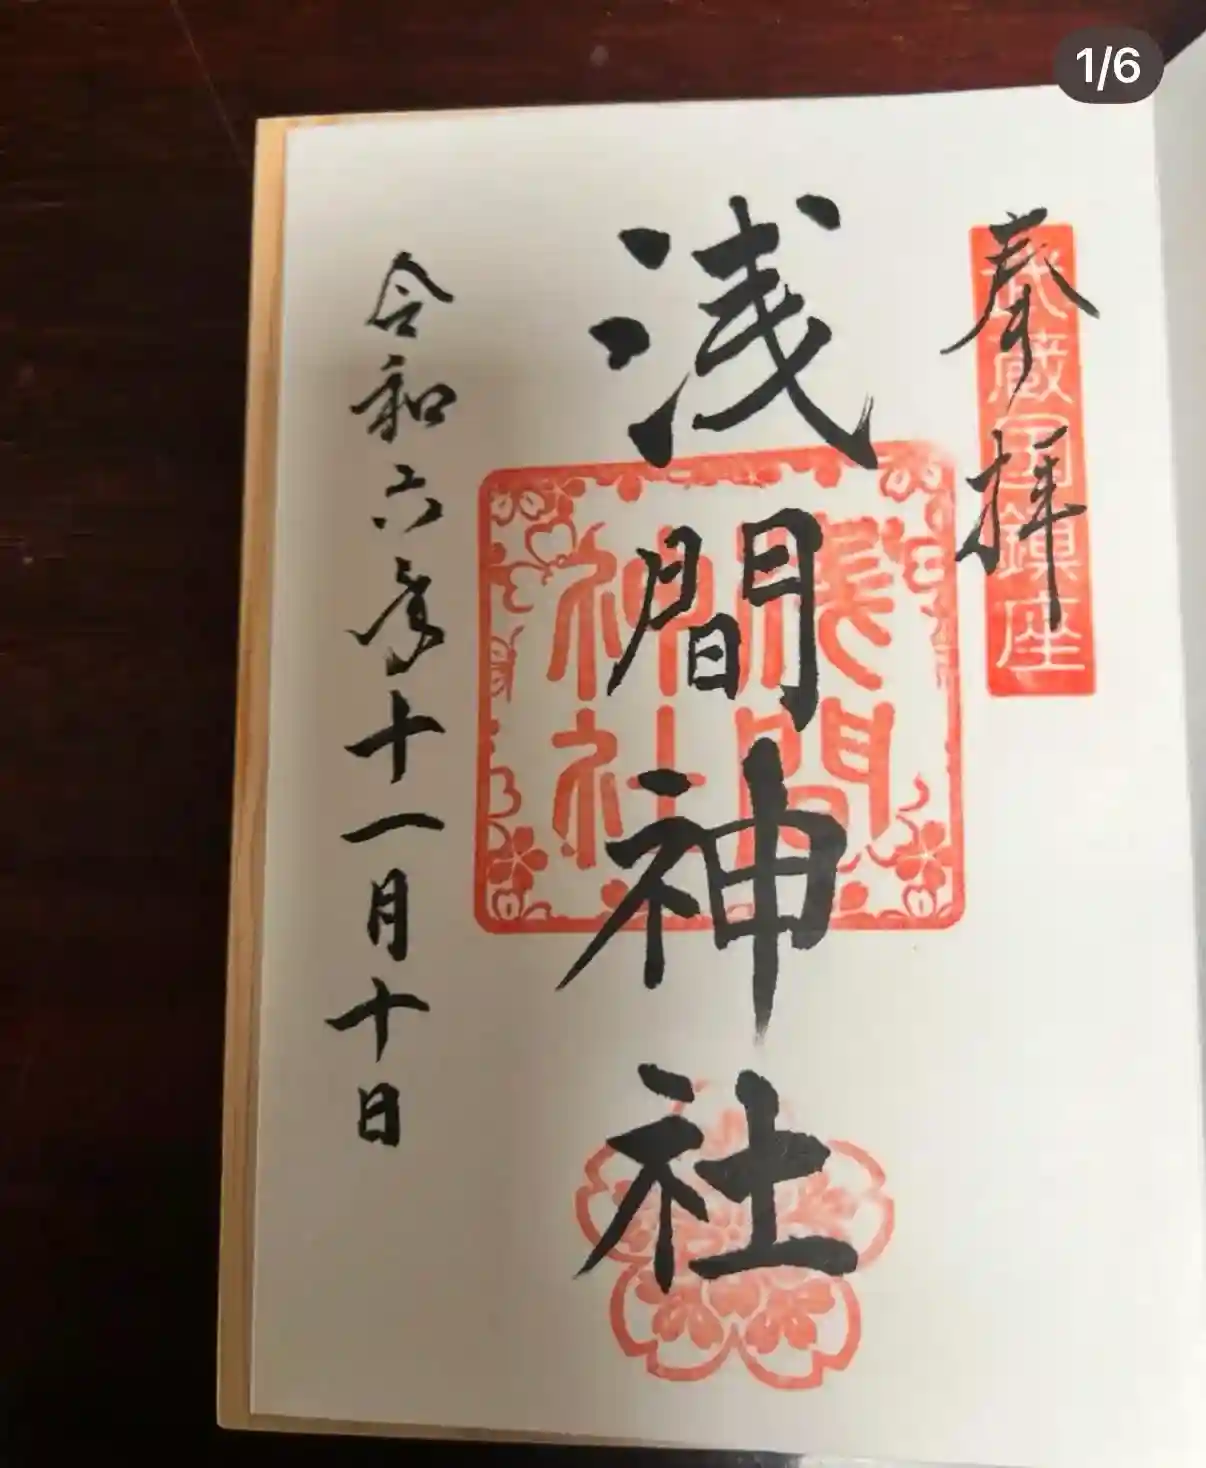 1/6
奉拝
武蔵国鎮座
浅間神社
浅間
神社
令和六年十一月十日